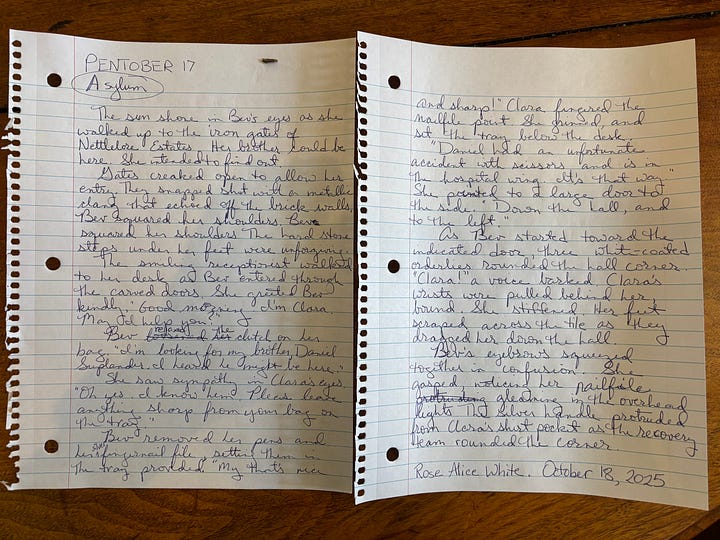 PENTOBER 17
Asylum
The sun shone in Bev's eyes as she
walked up to the iron gates of
Nettlelore Estates. Her brother could be
here. She intended to find out.
Gates creaked open to allow her
entry. They snapped shut with a metallic
clang that echoed off the brick walls.
Bev squared her shoulders. Bev
squared her shoulders The hard stone
steps under her feet were unforgiving.
The smiling receptionist walked
to her desk as Bev entered through
the carved doors. She greeted Bev
kindly. "Good morning. I'm Clara.
May I help you."
Bev relaxed the clutch on her
bag. "I'm looking for my brother, Daniel
I heard he might be here."
She saw sympathy in Clara's eyes.
"Oh yes. I know him. Please leave
anything sharp from your bag on
the tray."
Bev removed her pens and
her fingernail file, setting them in
the tray provided "My that's nice
and sharp!" Clara fingered the
nailfile point. She grinned, and
set the tray below the desk.
"Daniel had an unfortunate
accident with scissors and is in
the hospital wing. It's that way."
She pointed to a large door to
the side. "Down the hall, and
to the left."
As Bev started toward the
indicated door, three white-coated
orderlies rounded the hall corner.
"Clara!" a voice barked. Clara's
wrists were pulled behind her,
bound. She stiffened. Her feet
scraped across the tile as they
dragged her down the hall
Bev's eyebrows squeezed
together in confusion. She
gasped, noticing her nailfile
gleaming in the overhead
lights. The silver handle protruded
from Clara's shirt pocket as the recovery
team rounded the corner.
Rose Alice White. October 18, 2025